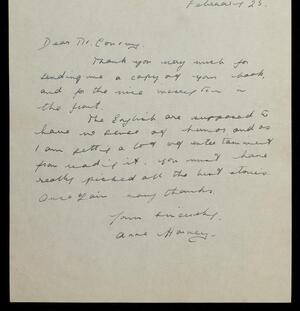 February 25.
Dear Mr. Conway,
Thank you very much for
sending me a copy of your book
and for the nice inscription in
the front.
The English are supposed to
have no sense of humor and as
I am getting a lot of entertainment
from reading it. You must have
really picked all the best stories
Once again many thanks.
Yours sincerely
Anne